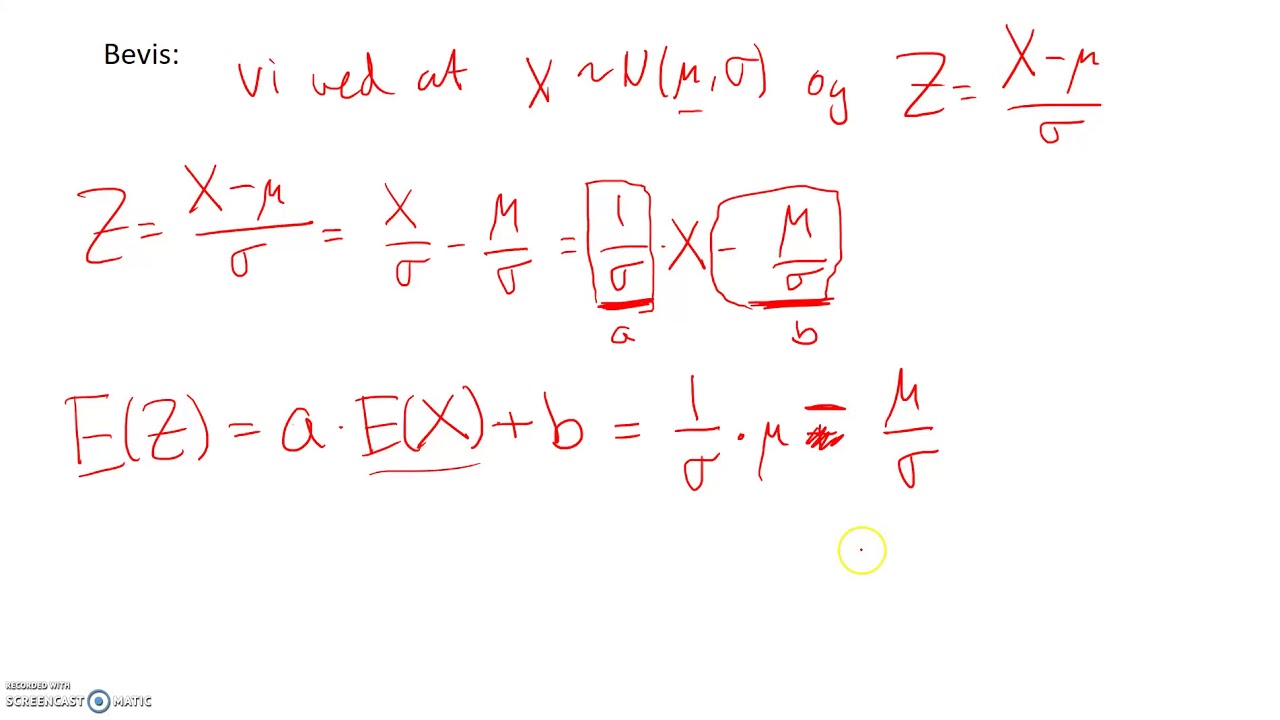 Bevis: Vi ved at X ~ N(μ, σ) og Z = (X - μ)/σ
Z = (X - μ)/σ = X/σ - μ/σ = 1/σ · X - μ/σ
a b
E(Z) = a · E(X) + b = 1/σ · μ - μ/σ
RECORDED WITH
SCREENCAST MATIC